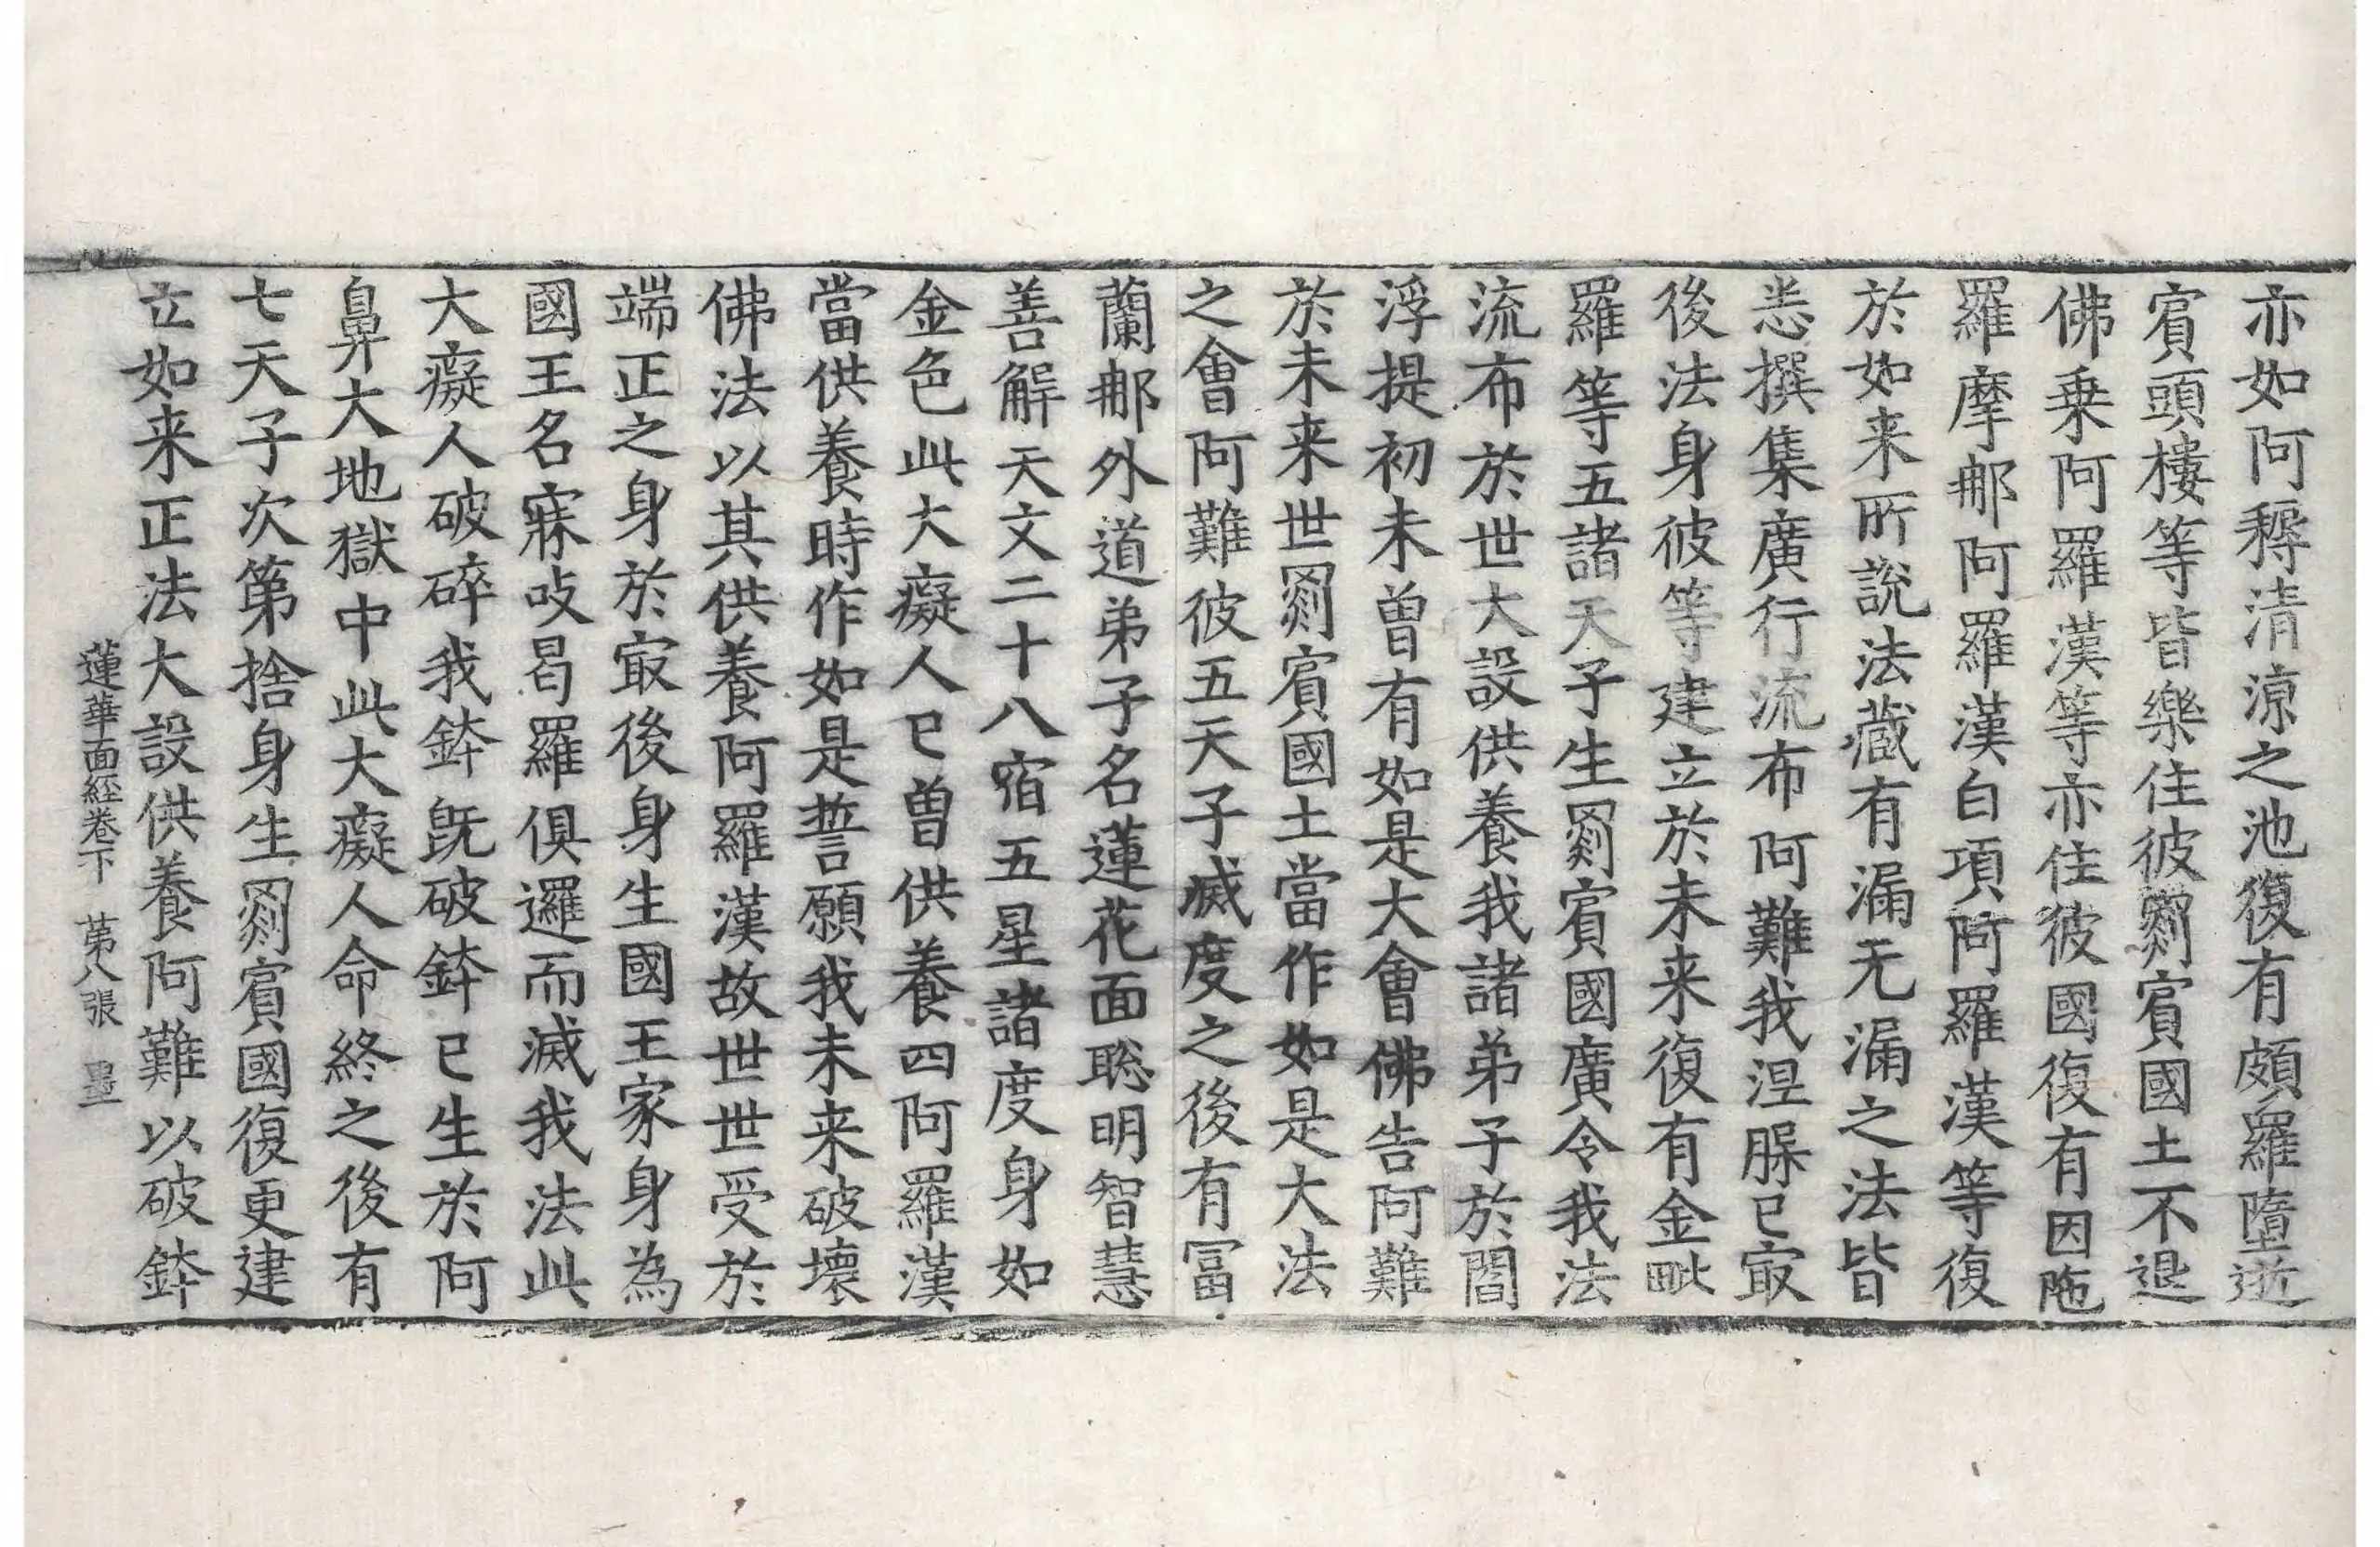 亦如阿耨清涼之池復有頗羅墮逝
賔頭樓等皆樂住彼罽賔國土不退
佛乗阿羅漢等亦住彼國復有因陁
羅摩那阿羅漢白項阿羅漢等復
於如来所說法藏有漏无漏之法皆
悉撰集廣行流布阿難我涅膎已㝡
後法身彼等建立於未来復有金毗
羅等五諸天子生罽賔國廣令我法
流布於世大設供養我諸弟子於閻
浮提初未曽有如是大會佛告阿難
於未来世罽賔國土當作如是大法
之會阿難彼五天子滅度之後有冨
蘭那外道弟子名蓮花面聡明智慧
善解天文二十八宿五星諸度身如
金色此大癡人已曽供養四阿羅漢
當供養時作如是誓願我未来破壞
佛法以其供養阿羅漢故世世受於
端正之身於㝡後身生國王家身為
國王名寐吱曷羅俱邏而滅我法此
大癡人破碎我鉢既破鉢已生於阿
鼻大地獄中此大癡人命終之後有
七天子次第捨身生罽賔國復更建
立如来正法大設供養阿難以破鉢
蓮華面經卷下 第八張 墨